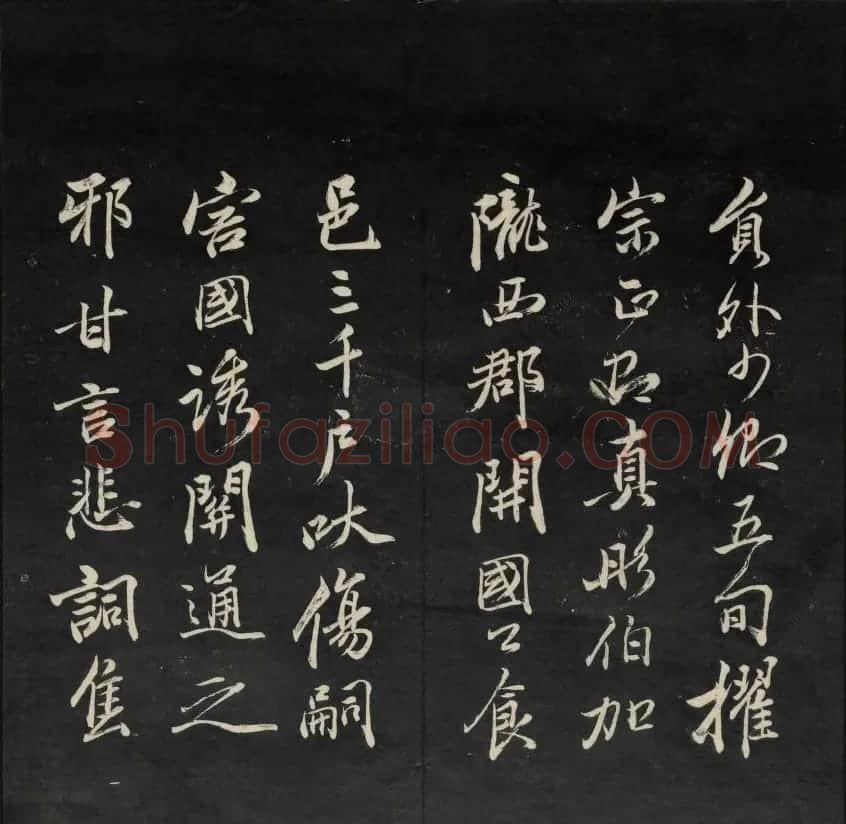 員外少卿五旬擢
宗正卿真彤伯加
隴西郡開國公食
邑三千戶吠傷嗣
害國誘關通之
邪甘言悲詞焦
Shufaziliao.COM